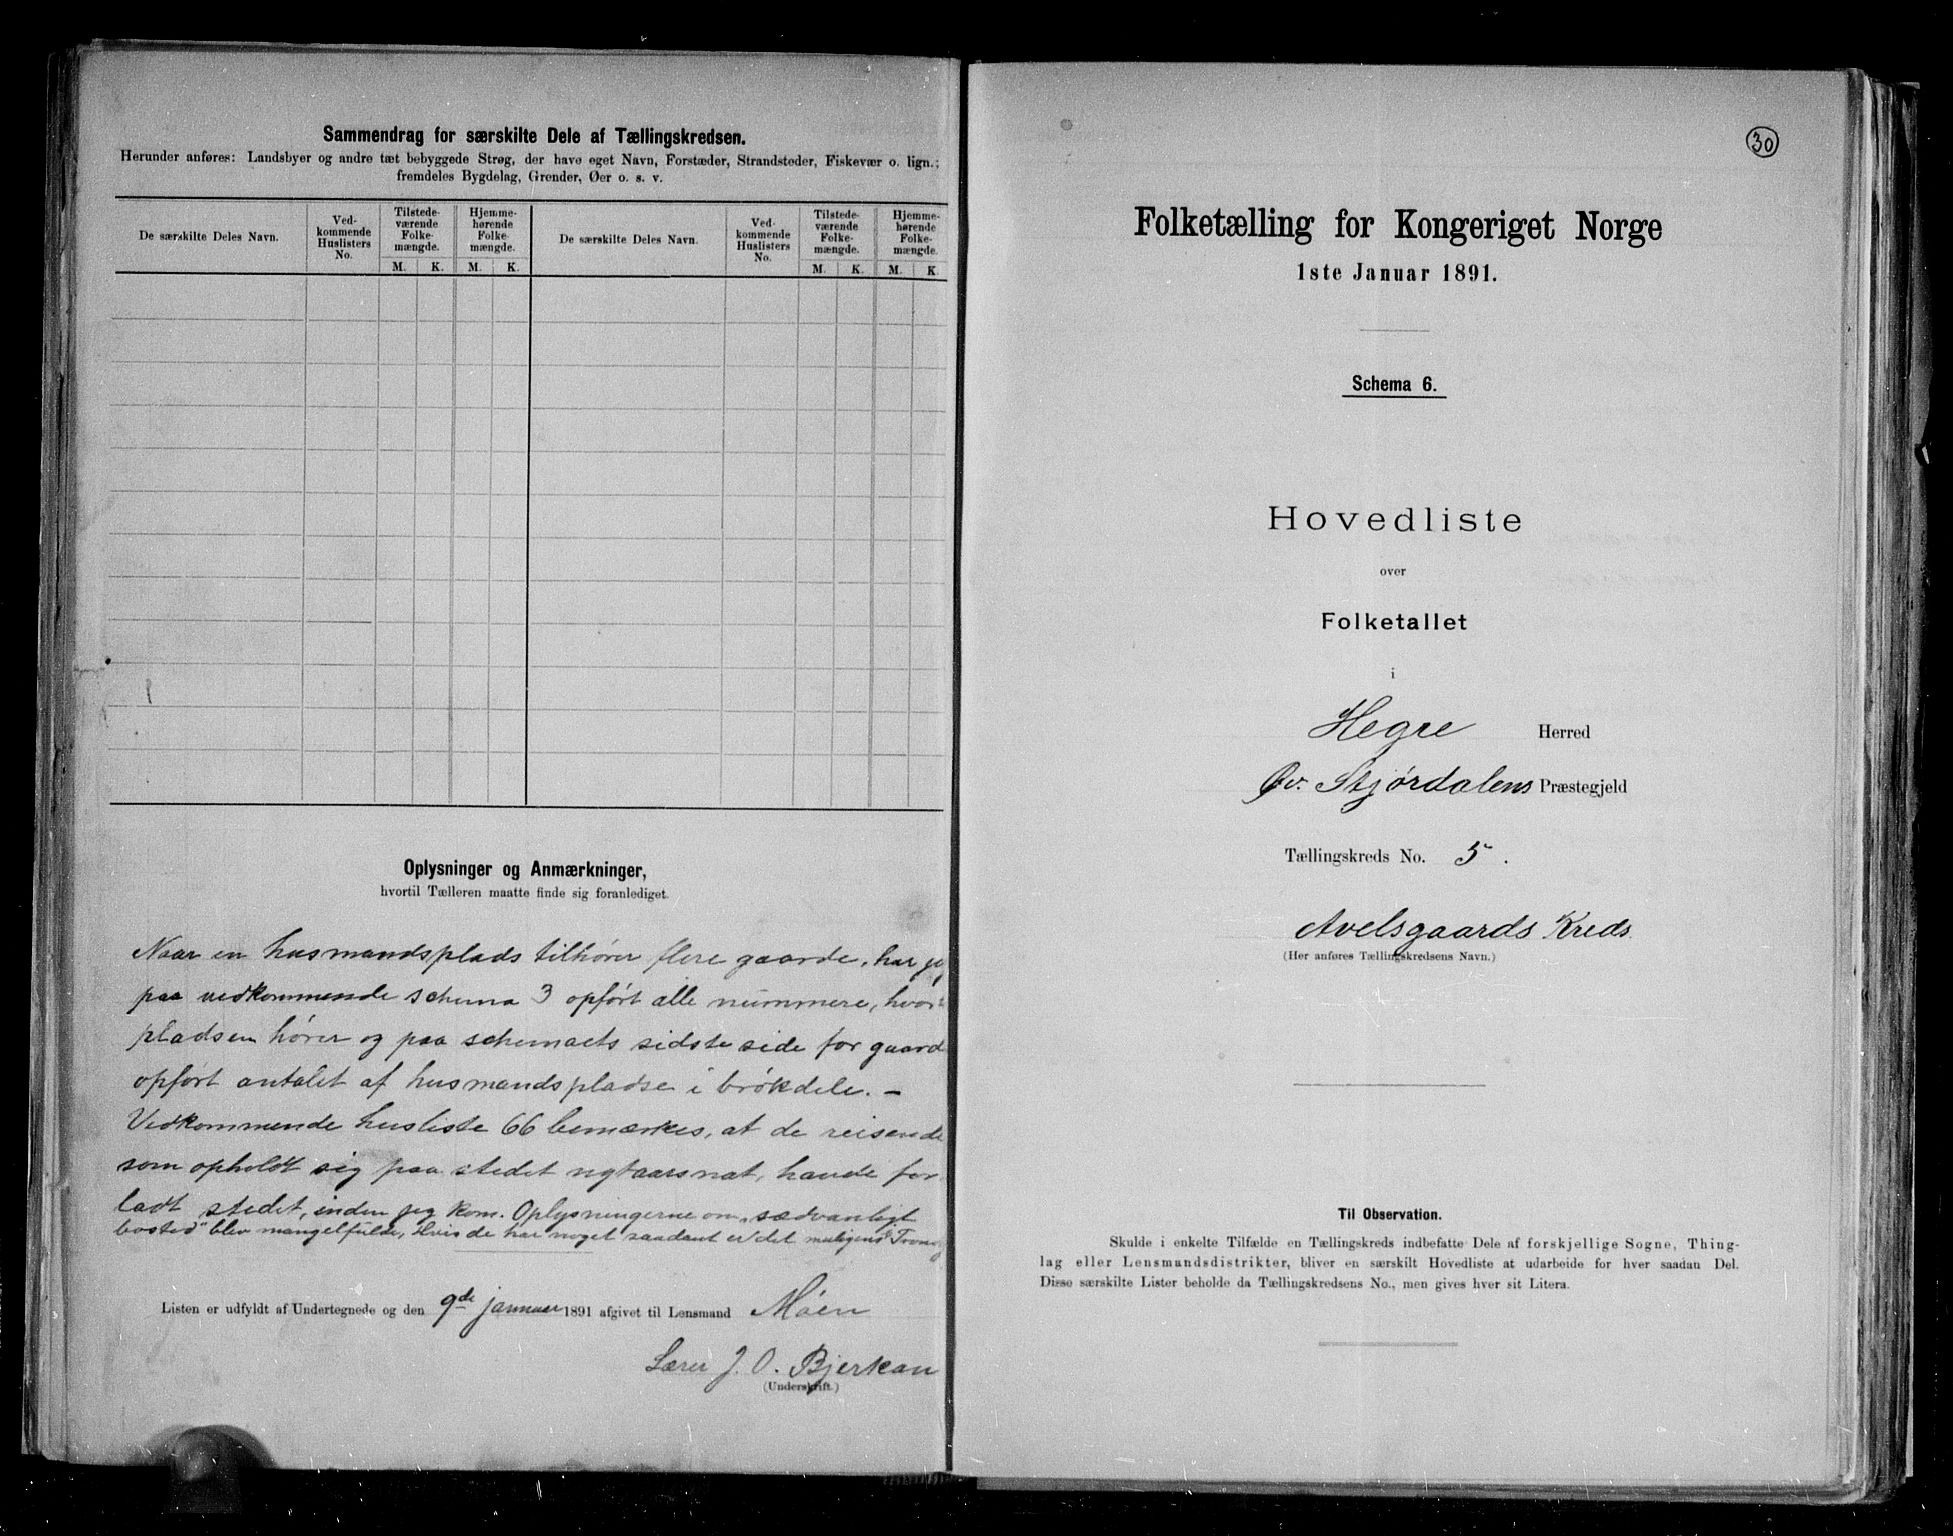 Sammendrag for særskilte Dele af Tællingskredsen.
Herunder anføres: Landsbyer og andre tæt bebyggede Strøg, der have eget Navn, Forstæder, Strandsteder, Fiskevær o. lign.;
fremdeles Bygdelag, Grender, Øer o. s. v.
De særskilte Deles Navn.
Ved-
kommende
Huslisters
No.
Tilstede-
værende
Folke-
mængde.
Hjemme-
hørende
Folke-
mængde.
M. K. M. K.
De særskilte Deles Navn.
Ved-
kommende
Huslisters
No.
Tilstede-
værende
Folke-
mængde.
Hjemme-
hørende
Folke-
mængde.
M. K. M. K.
Oplysninger og Anmærkninger,
hvortil Tælleren maatte finde sig foranlediget.
Naar en husmandsplads tilhører flere gaarde, har jeg
paa vedkommende schema 3 opført alle nummere, hvor
pladsen hører og paa schemaets sidste side for gaard
opført antalet af husmandspladse i brøkdele. —
Vedkommende husliste 66 bemærkes, at de reisende
som opholdt sig paa stedet nytaarsnat, havde for
ladt stedet, inden jeg kom. Oplysningerne om „sædvanligt
bosted" blev mangelfulde, Hvis de har noget saadant er det muligens
Listen er udfyldt af Undertegnede og den 9de januar 1891 afgivet til Lensmand Moen
Lærer J. O. Bjerkan
(Underskrift.)
30
Folketælling for Kongeriget Norge
1ste Januar 1891.
Schema 6.
Hovedliste
over
Folketallet
i
Hegre Herred
Øv. Stjørdalens Præstegjeld
Tællingskreds No. 5.
Avelsgaards Kreds.
(Her anføres Tællingskredsens Navn.)
Til Observation.
Skulde i enkelte Tilfælde en Tællingskreds indbefatte Dele af forskjellige Sogne, Thing-
lag eller Lensmandsdistrikter, bliver en særskilt Hovedliste at udarbeide for hver saadan Del.
Disse særskilte Lister beholde da Tællingskredsens No., men gives hver sit Litera.